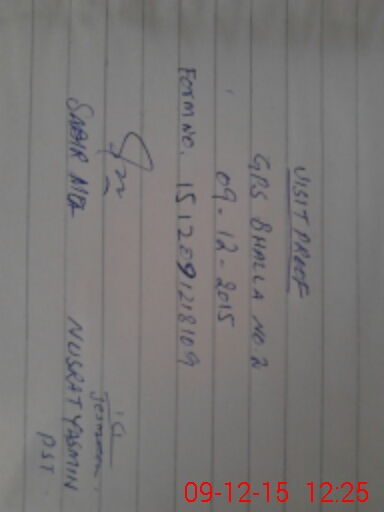 VISIT PROOF
GPS BHALLA NO 2
09-12-2015
FORM NO. 1512091218109
SABIR
NUSRAT YASMIN
PST
09-12-15 12:25